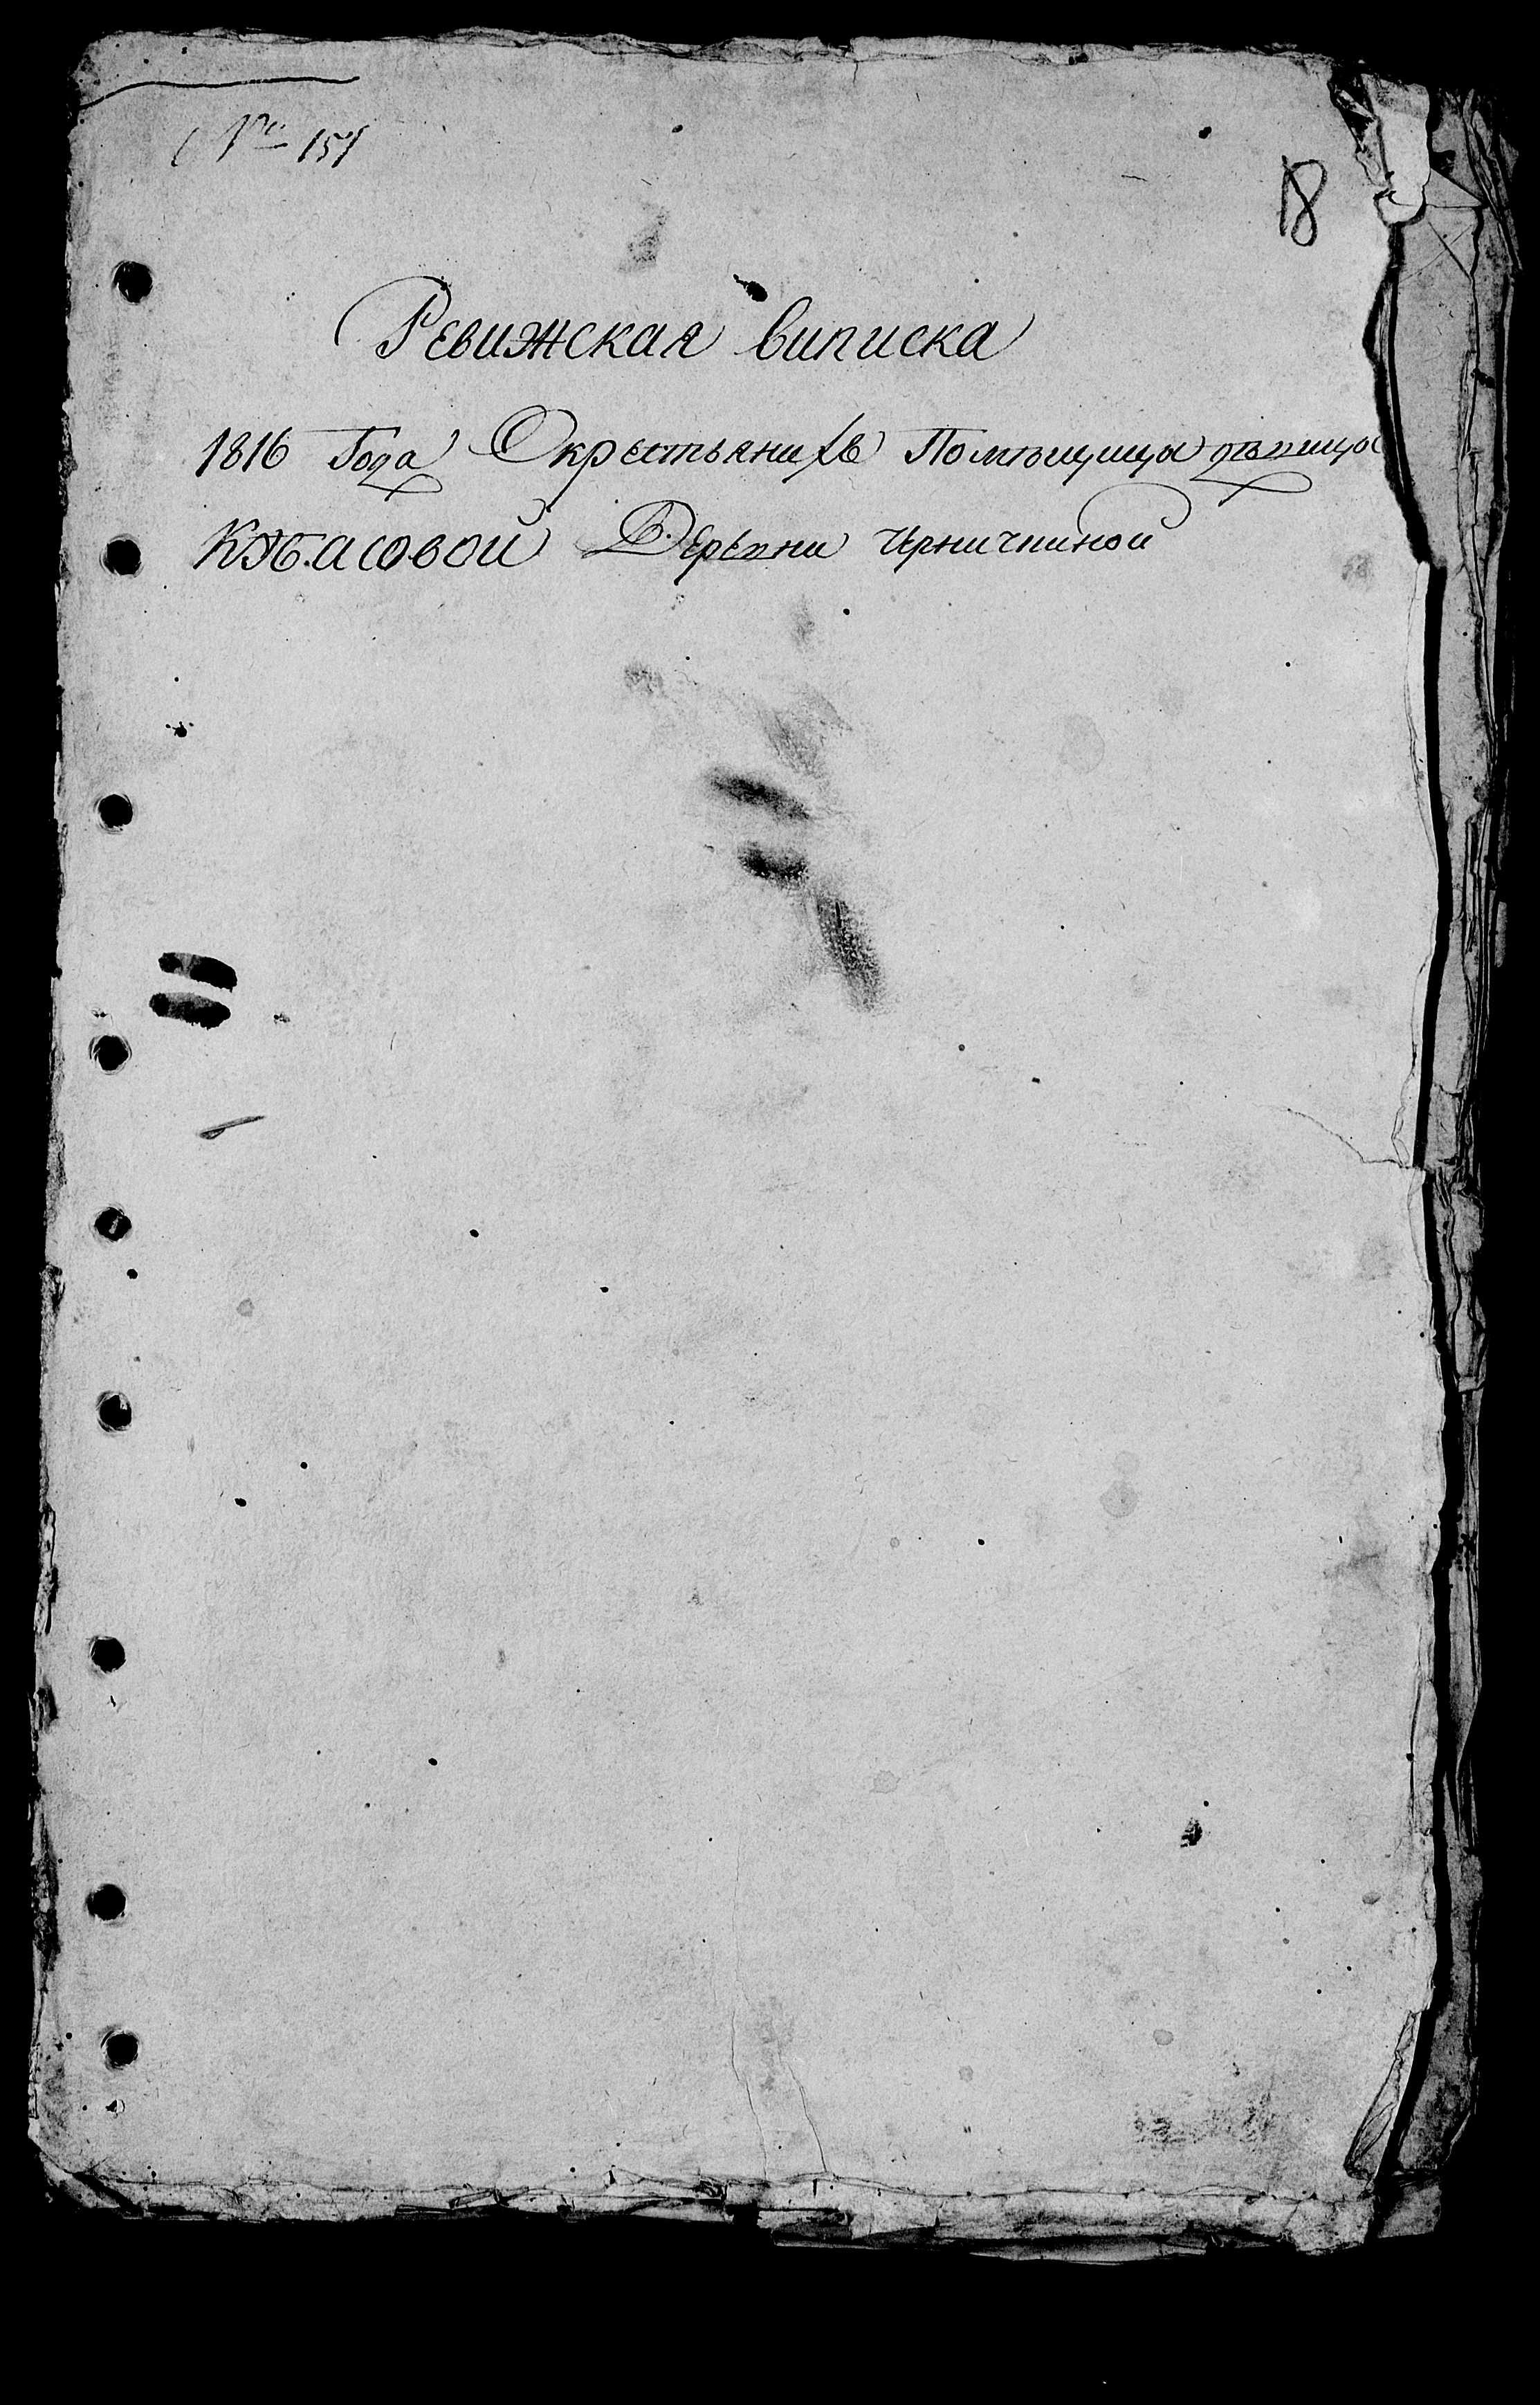 № 151
18
Ревижская виписка
1816 Года О крестьянихъ Помѣщицы дѣвицы
Кабасовой Деревни Черничкиной